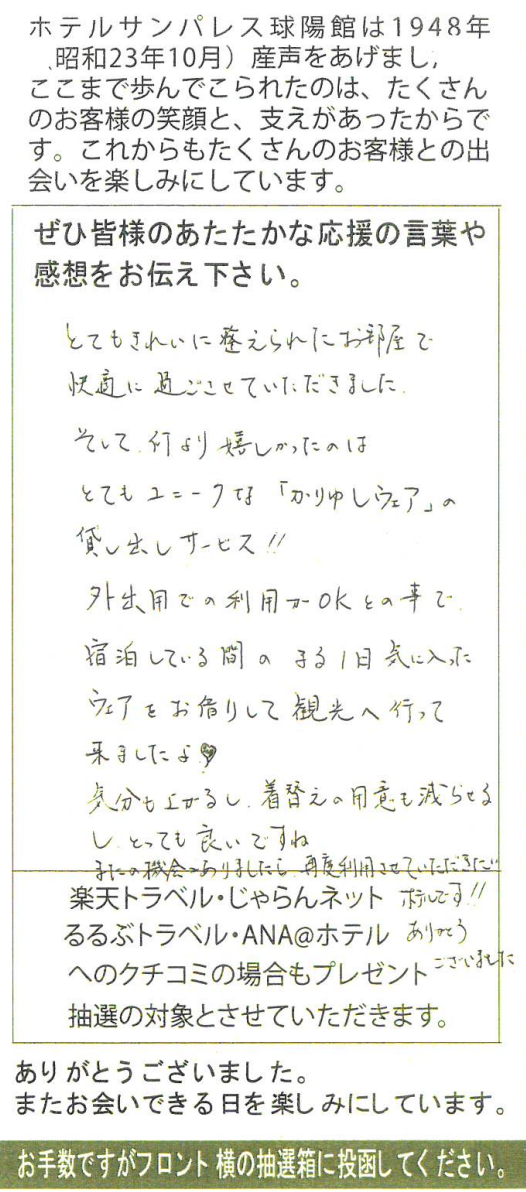 ホテルサンパレス球陽館は1948年
昭和23年10月）産声をあげまし,
ここまで歩んでこられたのは、たくさん
のお客様の笑顔と、支えがあったからで
す。これからもたくさんのお客様との出
会いを楽しみにしています。
ぜひ皆様のあたたかな応援の言葉や
感想をお伝え下さい。
とてもきれいに整えられたお部屋で
快適に過ごさせていただきました.
そして、何より嬉しかったのは
とてもユニークな「かりゆしウェア」の
貸し出しサービス!!
外出用での利用がOKとの事で、
宿泊している間のまる1日気に入った
ウェアをお借りして観光へ行って
来ましたよ♥
気分も上がるし、着替えの用意も減らせる
し、とっても良いですね
またの機会がありましたら、再度利用させていただきたい
楽天トラベル・じゃらんネット です!!
るるぶトラベル・ANA@ホテル ありがとう
へのクチコミの場合もプレゼント ございました
抽選の対象とさせていただきます。
ありがとうございました。
またお会いできる日を楽しみにしています。
お手数ですがフロント横の抽選箱に投函してください。